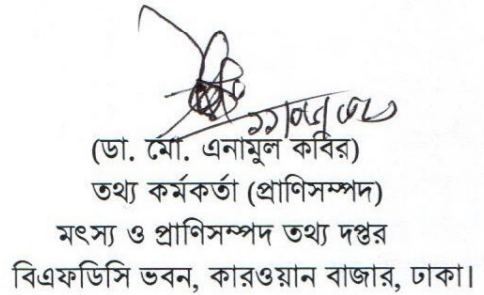 (ডা. মো. এনামুল কবির)
তথ্য কর্মকর্তা (প্রাণিসম্পদ)
মৎস্য ও প্রাণিসম্পদ তথ্য দপ্তর
বিএফডিসি ভবন, কারওয়ান বাজার, ঢাকা।